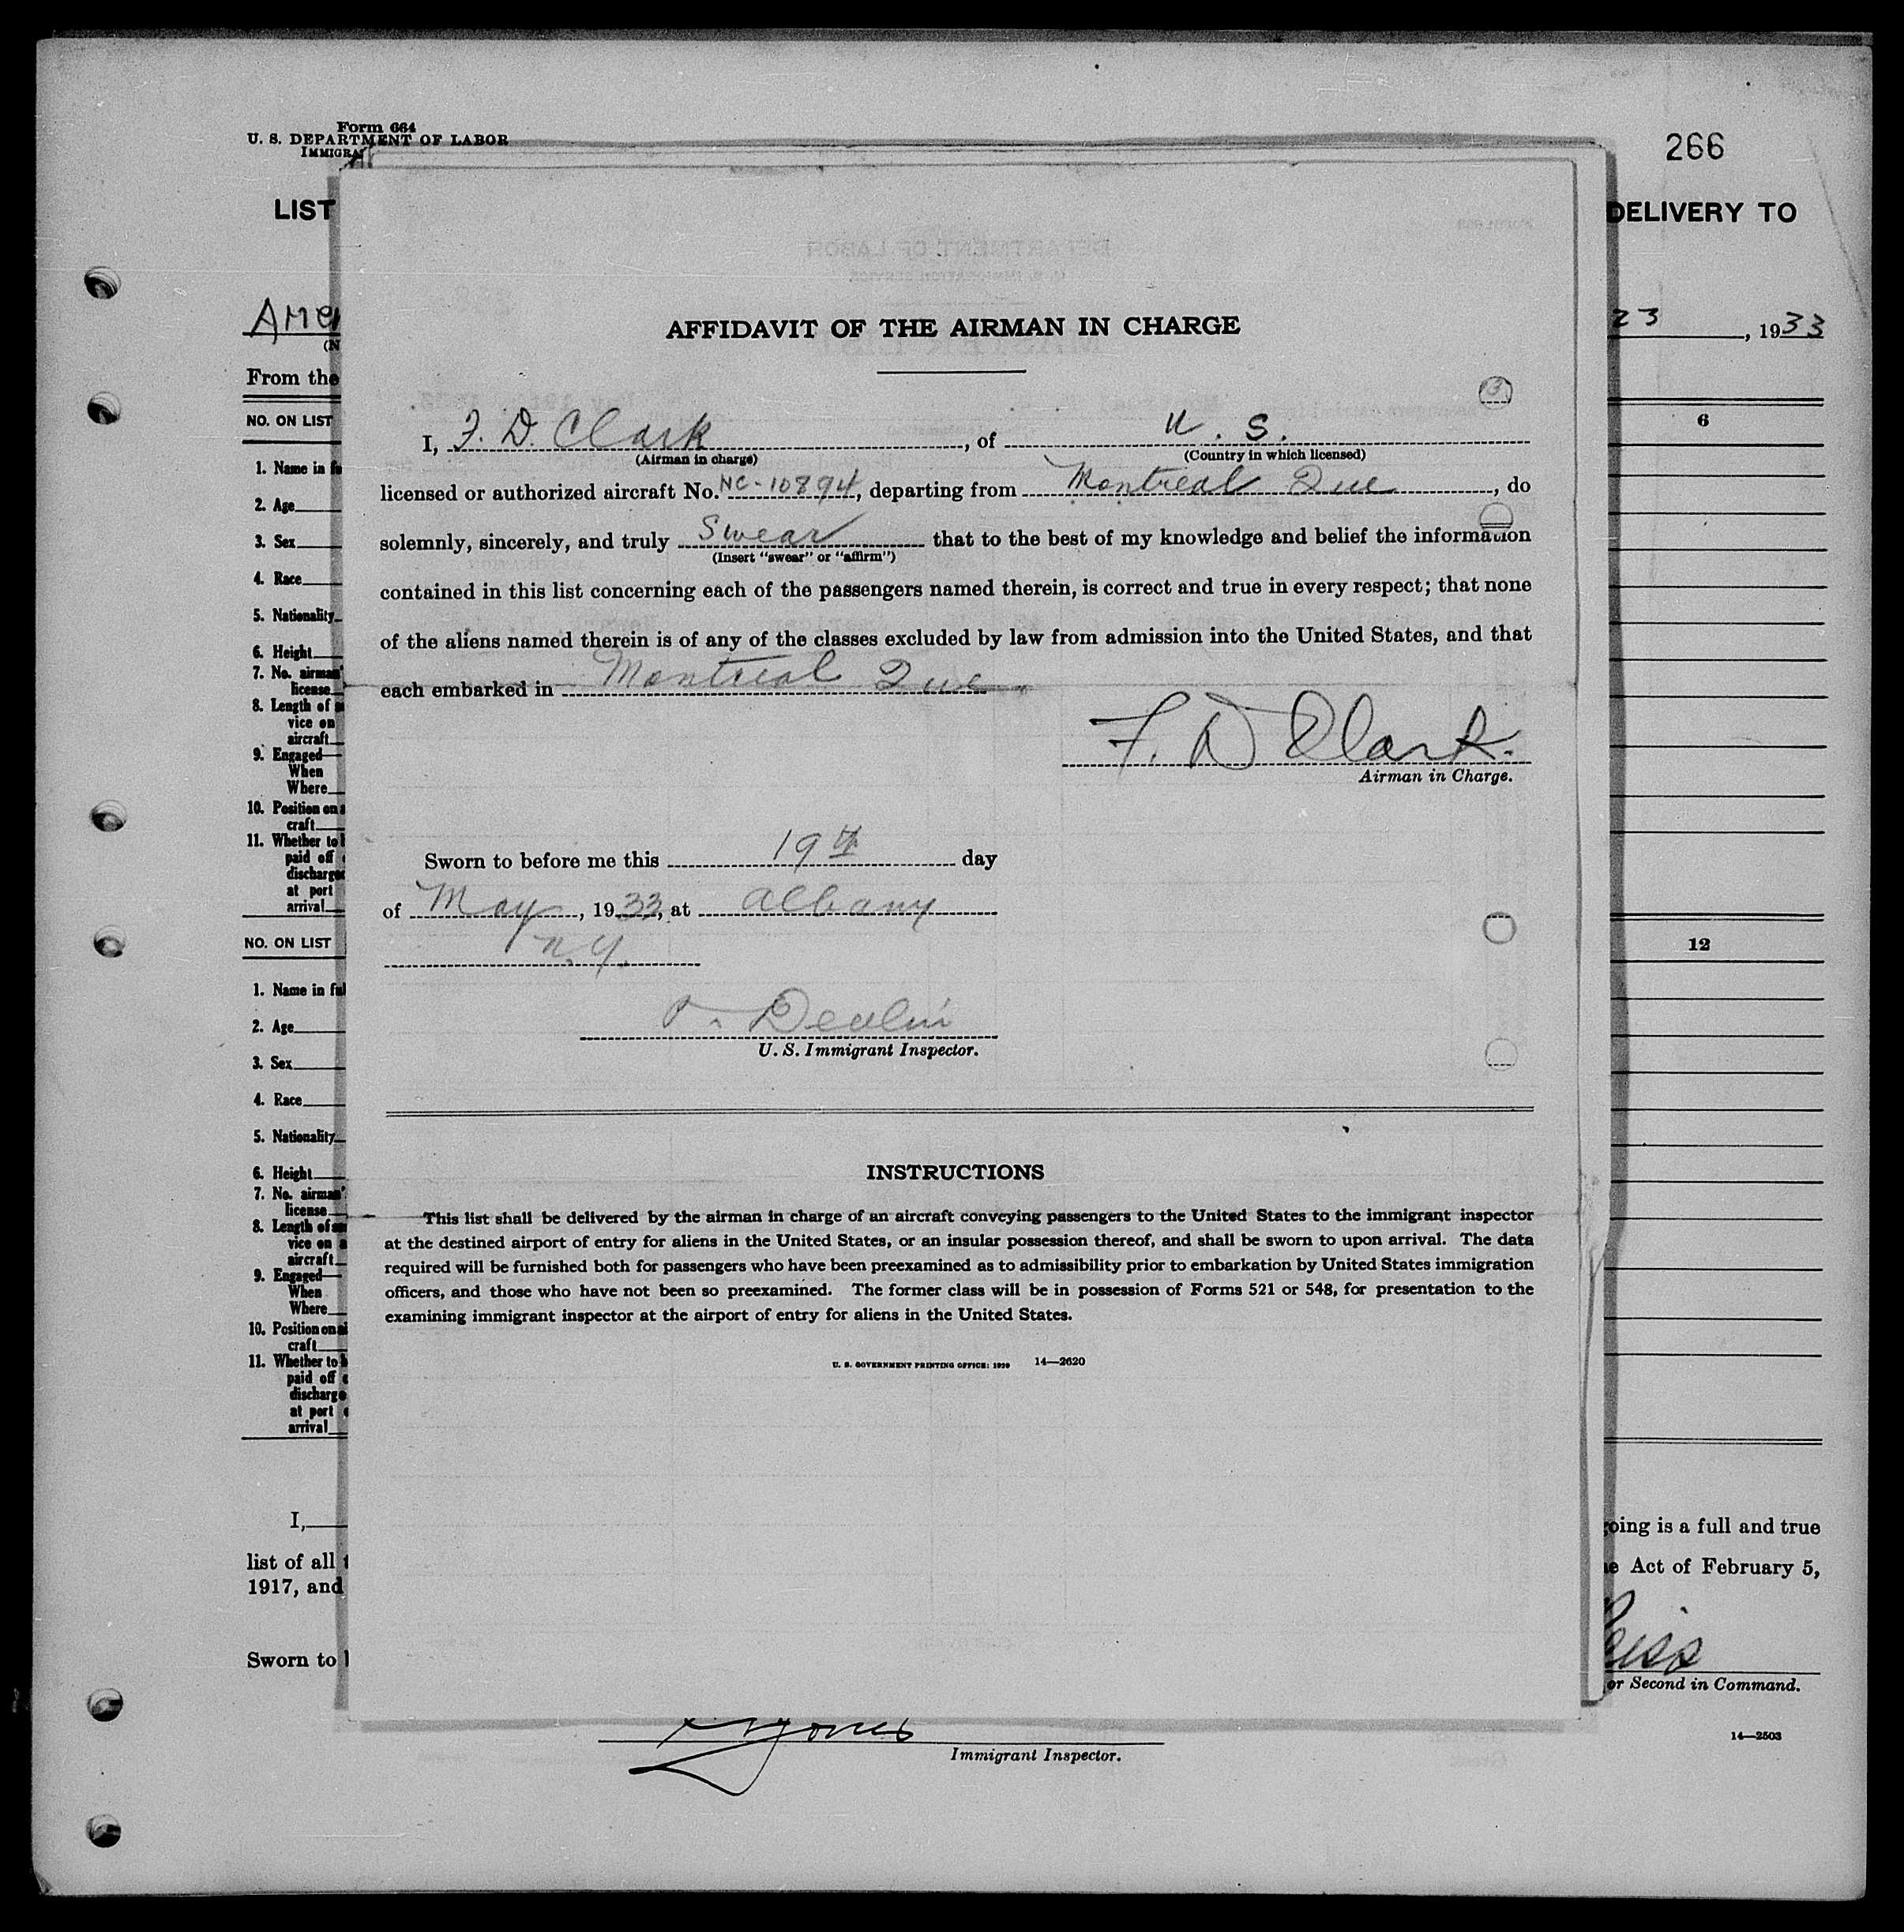 Form 664
U. S. DEPARTMENT OF LABOR
266
LIST
DELIVERY TO
23, 1933
From the
NO. ON LIST
6
1. Name in
2. Age
3. Sex
4. Race
5. Nationality
6. Height
7. No. airman's
license
8. Length of
vice on
aircraft
9. Engaged—
When
Where
10. Position on
craft
11. Whether to
paid off
discharged
at port
arrival
NO. ON LIST
12
1. Name in
2. Age
3. Sex
4. Race
5. Nationality
6. Height
7. No. airman's
license
8. Length of
vice on
aircraft
9. Engaged—
When
Where
10. Position on
craft
11. Whether to
paid off
discharge
at port
arrival
I,
going is a full and true
list of all
Act of February 5,
1917, and
Sworn to
or Second in Command.
14—2503
Immigrant Inspector.
AFFIDAVIT OF THE AIRMAN IN CHARGE
3
I, F. D. Clark, of U. S.
(Airman in charge) (Country in which licensed)
licensed or authorized aircraft No. NC-10894, departing from Montreal Que, do
solemnly, sincerely, and truly Swear that to the best of my knowledge and belief the information
(Insert "swear" or "affirm")
contained in this list concerning each of the passengers named therein, is correct and true in every respect; that none
of the aliens named therein is of any of the classes excluded by law from admission into the United States, and that
each embarked in Montreal Que.
F. D Clark.
Airman in Charge.
Sworn to before me this 19th day
of May, 1933, at Albany
N.Y.
Devlin
U. S. Immigrant Inspector.
INSTRUCTIONS
This list shall be delivered by the airman in charge of an aircraft conveying passengers to the United States to the immigrant inspector
at the destined airport of entry for aliens in the United States, or an insular possession thereof, and shall be sworn to upon arrival. The data
required will be furnished both for passengers who have been preexamined as to admissibility prior to embarkation by United States immigration
officers, and those who have not been so preexamined. The former class will be in possession of Forms 521 or 548, for presentation to the
examining immigrant inspector at the airport of entry for aliens in the United States.
U. S. GOVERNMENT PRINTING OFFICE: 1929 14—2620